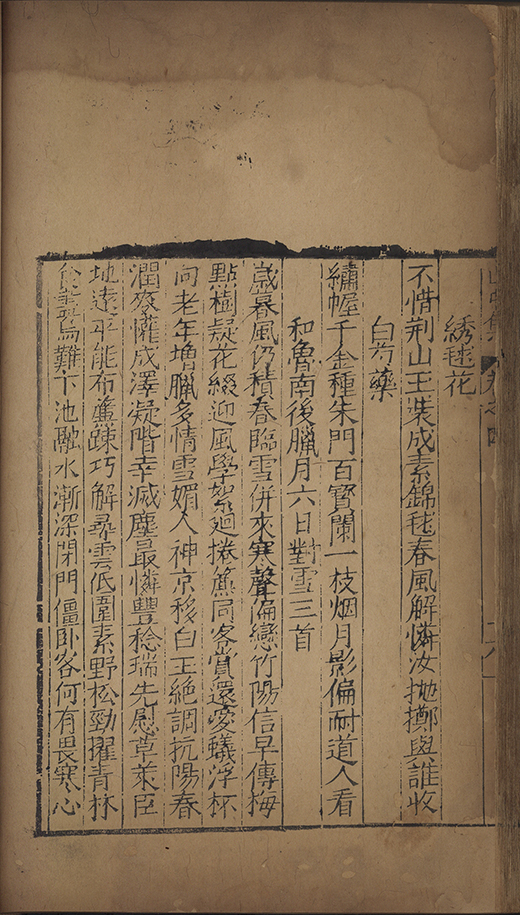 山中集 卷之四
綉毬花
不惜荆山玉裝成素錦毬春風解憐汝抛擲與誰收
白芍藥
繡幄千金種朱門百寳闌一枝烟月影偏耐道人看
和魯南後臘月六日對雪三首
歲暮風仍積春臨雪併來寒聲偏戀竹陽信早傳梅
點樹疑花綴迎風學絮迴捲簾同客賞還愛蟻浮杯
向老年增臘多情雪媚人神京移白玉絶調抗陽春
潤成澤凝階幸滅塵最憐豐稔瑞先慰草萊臣
地遠平能布簷踈巧解尋雲低圍素野松勁擢青林
食盡烏難下池融水漸深閉門僵卧客何有畏寒心